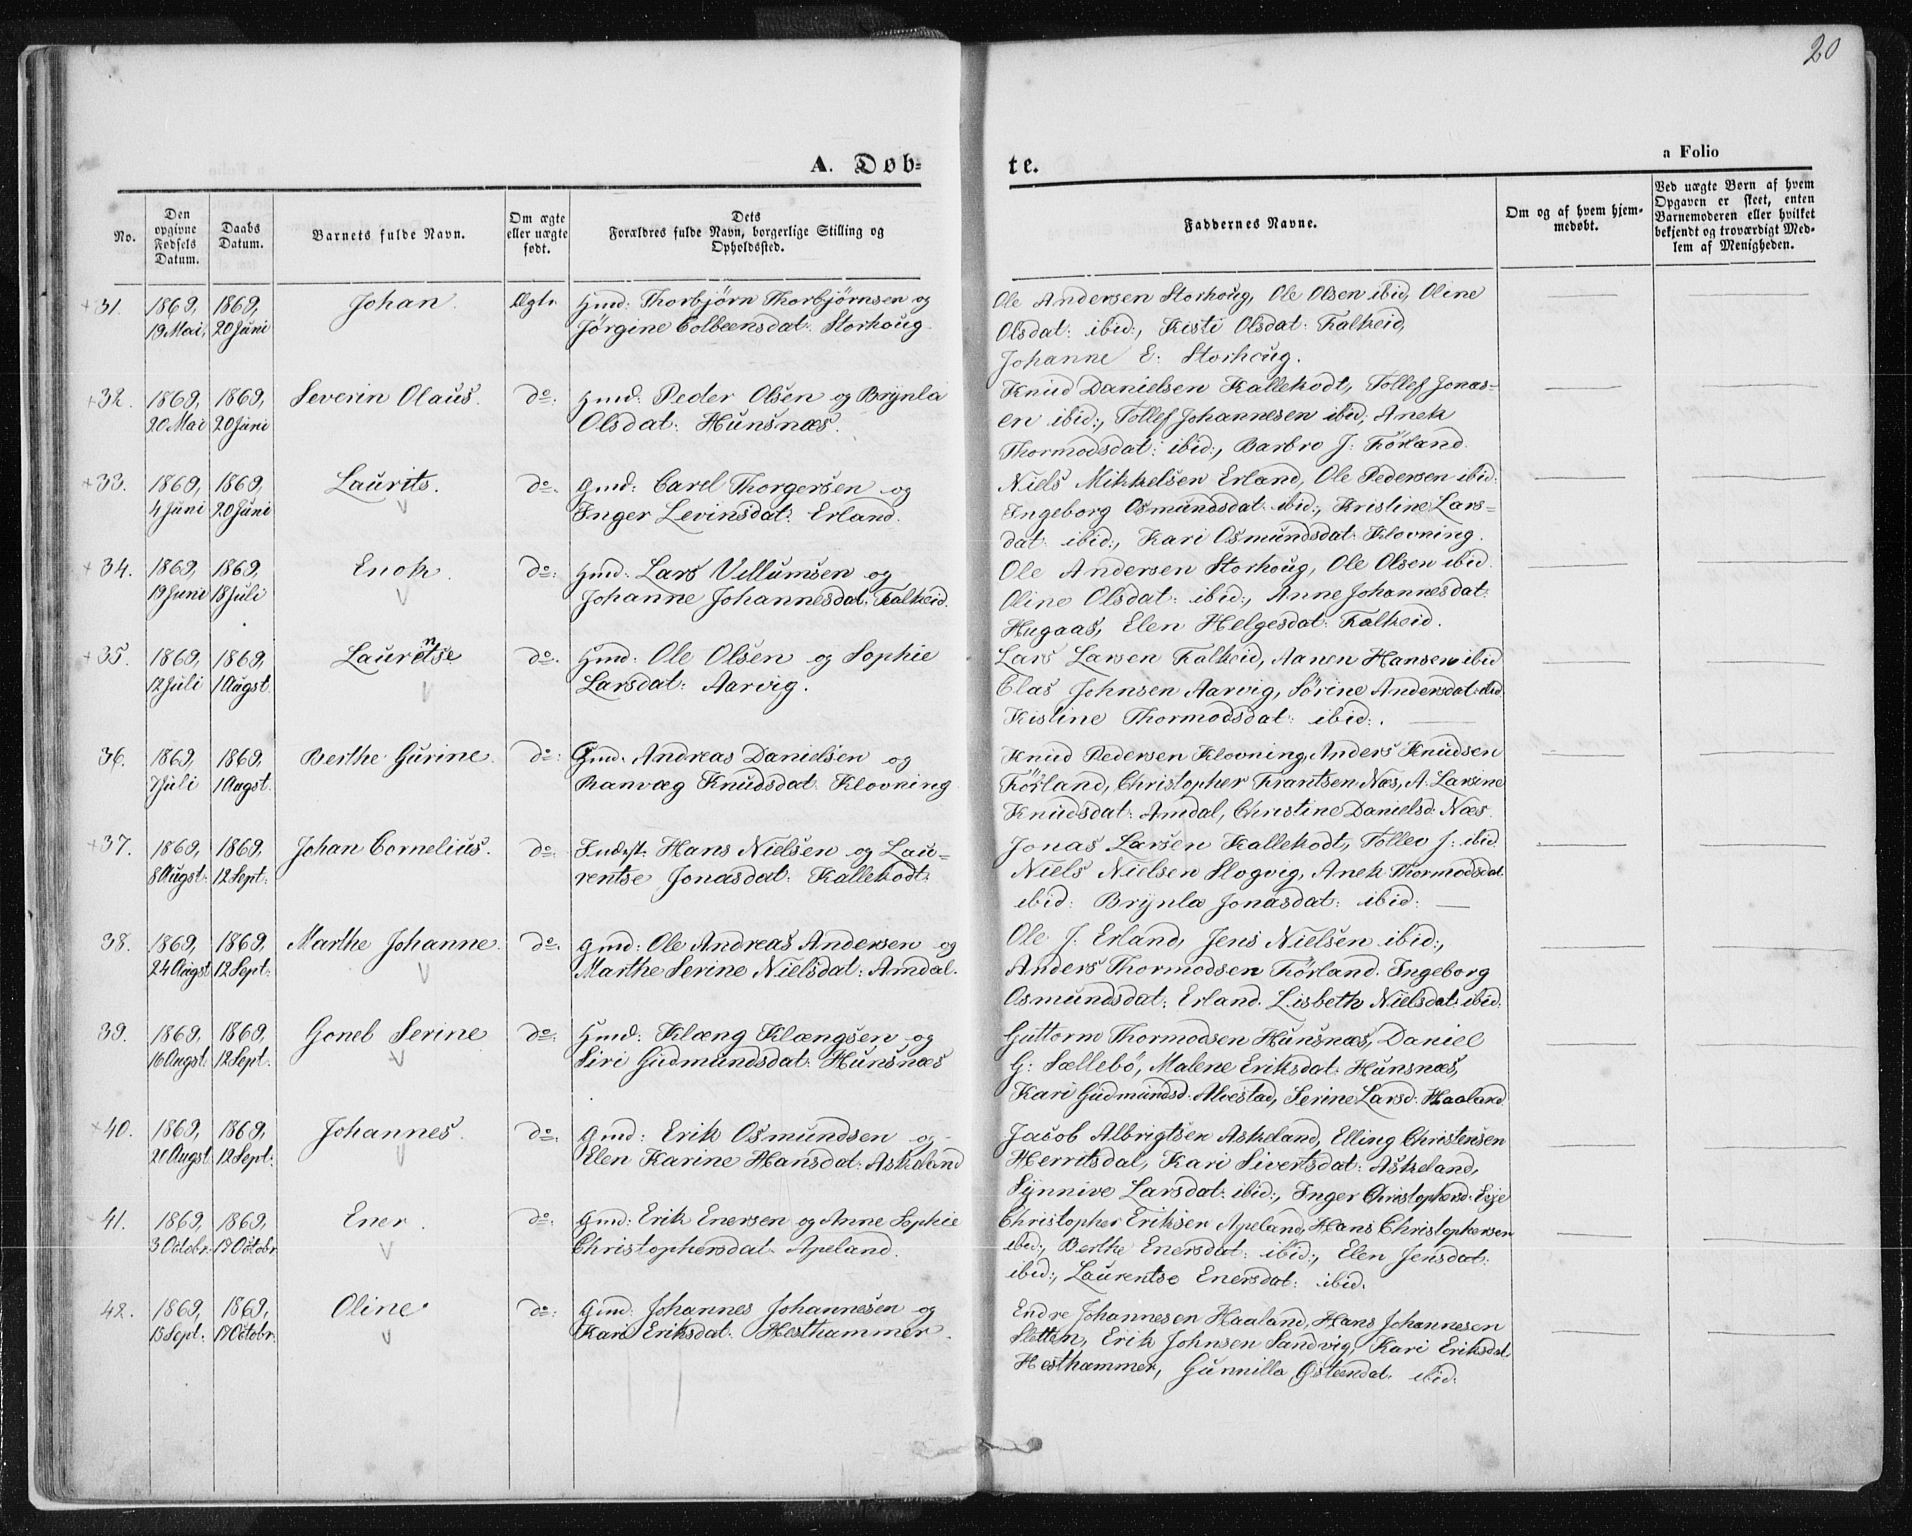 20
A. Døb-
te.
a Folio
No.
Den opgivne Fødsels Datum.
Daabs Datum.
Barnets fulde Navn.
Om ægte eller uægte født.
Dets Forældres fulde Navn, borgerlige Stilling og Opholdssted.
Faddernes Navne.
Om og af hvem hjemmedøbt.
Ved uægte Børn af hvem Opgaven er skeet, enten Barnemoderen eller hvilket bekjendt og troværdigt Medlem af Menigheden.
+31. 1869, 19 Mai, 1869, 20 Juni Johan. Ægte
Gmd: Thorbjörn Thorbjörnsen og
Jörgine Colbeensdat: Storhoug
Ole Andersen Storhoug, Ole Olsen ibid, Oline
Olsdat: ibid:, Kisti Olsdat: Falkeid,
Johanne E: Storhoug.
+32. 1869, 20 Mai 1869, 20 Juni Severin Olaus. do:
Hmd: Peder Olsen og Brynla
Olsdat: Hunsnæs.
Knud Danielsen Kallekodt, Tollef Jonas-
en ibid:, Tollef Johannesen ibid, Anek
Thormodsdat: ibid:, Barbro J: Förland.
+33. 1869, 4 Juni 1869, 20 Juni Laurits. do.
Gmd: Carel Thorgersen og
Inger Levinsdat: Erland.
Niels Mikkelsen Erland, Ole Pedersen ibid:
Ingeborg Osmundsdat: ibid:, Kristine Lars-
dat: ibid:, Kari Osmundsdat: Klovning.
+34. 1869, 19 Juni 1869, 18 Juli Enok. do:
Hmd: Lars Villumsen og
Johanne Johannesdat: Falkeid.
Ole Andersen Storhoug, Ole Olsen ibid.
Oline Olsdat: ibid:, Anne Johannesdat:
Hugaas, Elen Helgesdat: Falkeid.
+35. 1869, 12 Juli 1869, 1 Augst. Laurentse do.
Hmd: Ole Olsen og Sophie
Larsdat: Aarvig.
Lars Larsen Falkeid, Aanen Hansen ibid
Clas Johnsen Aarvig, Sörine Andersdat: ibid
Kistine Thormodsdat: ibid:.
36. 1869, 7 Juli 1869, 1 Augst. Berthe Gurine. do:
Gmd. Andreas Danielsen og
Ranvæg Knudsdat: Klovning
Knud Pedersen Klovning, Anders Knudsen
Förland, Christopher Frantsen Næs, A. Larsine
Knudsdat: Amdal, Christine Danielsd: Næs.
+37. 1869, 8 Augst: 1869, 12 Sept: Johan Cornelius. do:
Inderst: Hans Nielsen og Lau-
rentse Jonasdat: Kallekodt:
Jonas Larsen Kallekodt, Tollev J: ibid
Niels Nielsen Slogvig, Anek Thormodsdat
ibid: Brynla Jonasdat: ibid:
38. 1869, 24 Augst 1869, 12 Sept: Marthe Johanne. do.
Gmd: Ole Andreas Andersen og
Marthe Serine Nielsdat: Amdal.
Ole J. Erland, Jens Nielsen ibid:,
Anders Thormodsen Förland. Ingeborg
Osmundsdat: Erland. Lisbeth Nielsdat: ibid.
39. 1869, 16 Augst. 1869, 12 Sept. Gonel Serine do:
Hmd: Klæng Klængsen og
Siri Gudmundsdat: Hunsnæs
Guttorm Thormodsen Hunsnæs, Daniel
G: Sællebö, Malene Eriksdat: Hunsnæs,
Kari Gudmundsd: Alvestad, Serine Larsd: Haaland.
40. 1869, 20 Augst 1869, 12 Sept: Johannes. do:
Gmd: Erik Osmundsen og
Elen Karine Hansdat: Askeland
Jacob Albrigtsen Askeland, Elling Christensen
Herritsdal, Kari Sivertsdat: Askeland,
Synnive Larsdat: ibid:, Inger Christophersd: Eeje
41. 1869, 3 Octobr. 1869, 17 Octobr. Ener. do:
Gmd: Erik Enersen og Anne Sophie
Christophersdat: Apeland.
Christopher Eriksen Apeland, Hans Christophersen
ibid:, Berthe Enersdat: ibid:, Elen Jensdat:
ibid:, Laurentse Enersdat: ibid.
42. 1869, 15 Sept: 1869, 17 Octobr. Oline. do:
Gmd: Johannes Johannesen og
Kari Eriksdat: Hesthammer.
Endre Johannesen Haaland, Hans Johannesen
Sletten, Erik Johnsen Sandvig, Kari Eriksdat
Hesthammer, Gunnilla Östeendat. ibid: